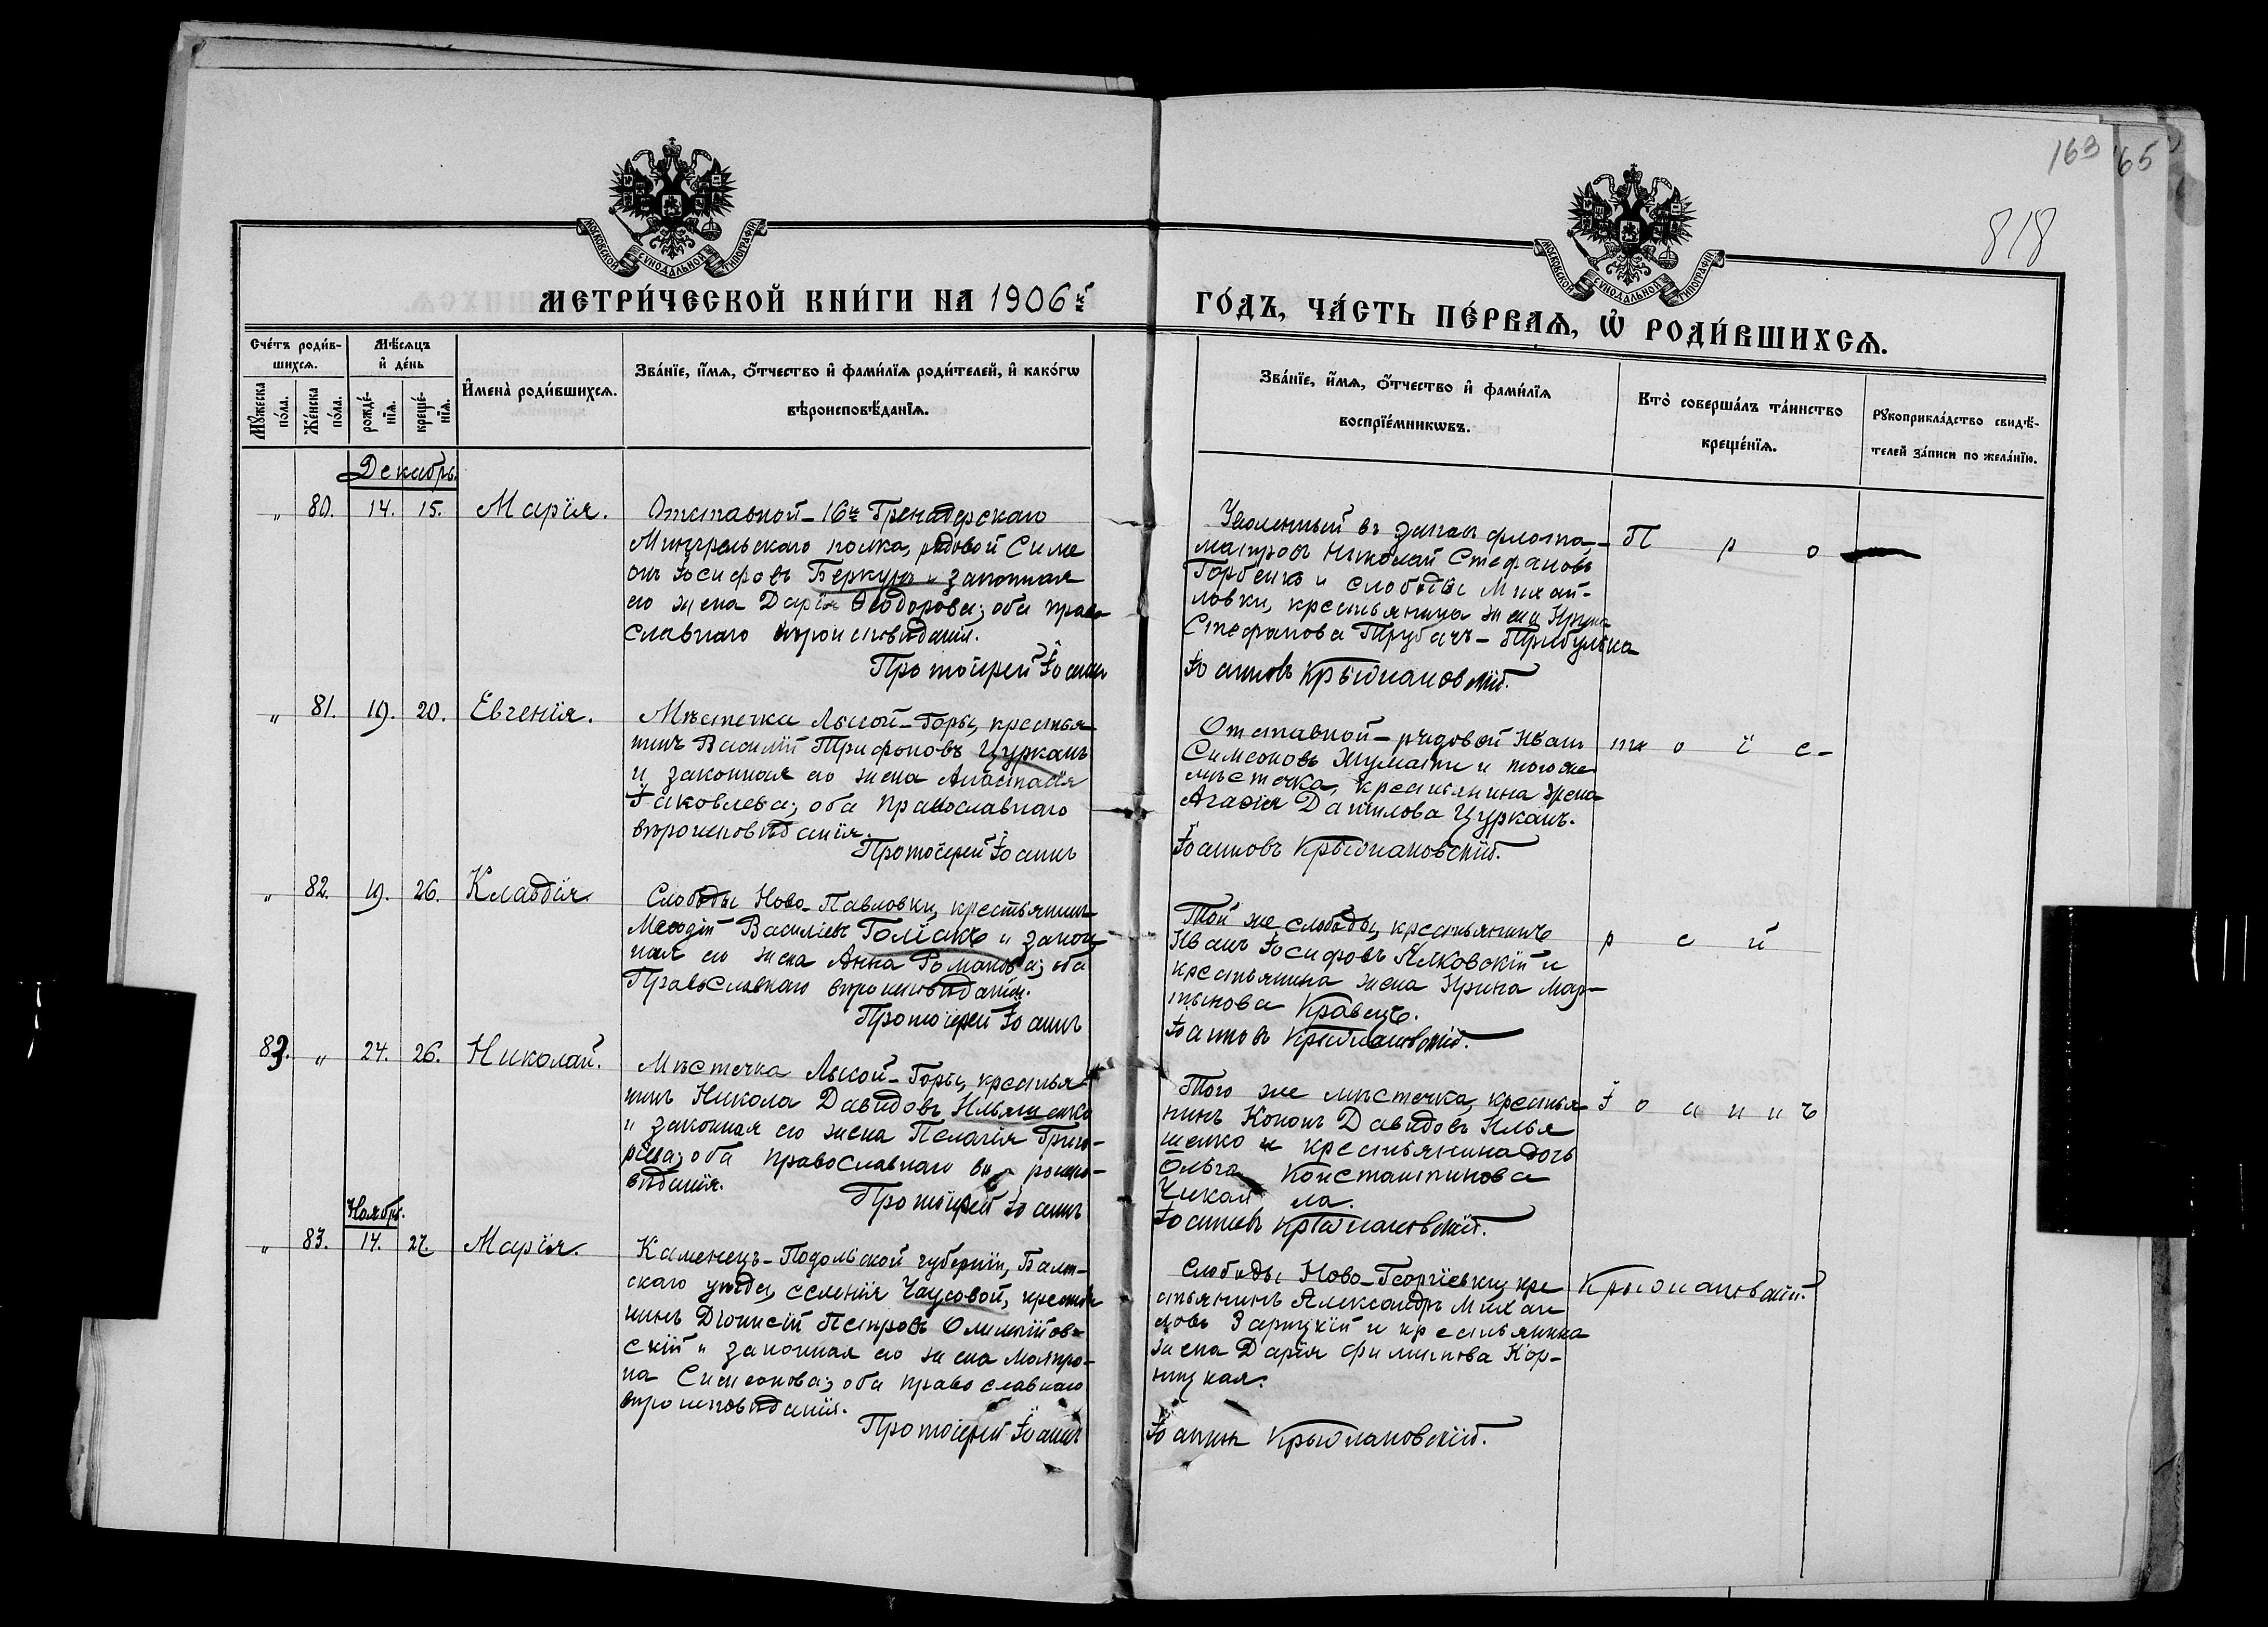 163 165
818
МОСКОВСКОЙ СѴНОДАЛЬНОЙ ТИПОГРАФІИ
МОСКОВСКОЙ СѴНОДАЛЬНОЙ ТИПОГРАФІИ
МЕТРИ́ЧЕСКОЙ КНИ́ГИ НА 1906й ГО́ДЪ, ЧА́СТЬ ПЕ́РВАѦ, Ѡ РОДИ́ВШИХСѦ.
Сче́тъ роди́в-
шихсѧ.
Мѣ́сѧцъ
и҆ де́нь
Мꙋ́жеска по́ла.
Же́нска по́ла.
рожде́-
нїѧ.
креще́-
нїѧ.
И҆мена̀ роди́вшихсѧ.
Зва́нїе, и҆́мѧ, ѻ҆́тчество и҆ фами́лїѧ роди́телей, и҆ како́гѡ
вѣроисповѣ́данїѧ.
Зва́нїе, и҆́мѧ, ѻ҆́тчество и҆ фами́лїѧ
воспрїе́мникѡвъ.
Кто̀ соверша́лъ та́инство
креще́нїѧ.
Рꙋкоприкла́дство свидѣ́-
телей за́писи по жела́нїю.
Декабрь.
„ 80. 14. 15. Марія.
Отставной - 16го Гренадерскаго
Мингрельскаго полка, рядовой Симе
онъ Іосифовъ Беркунъ и законная
его жена Дарія Ѳеодорова; оба право
славнаго вѣроисповѣданія.
Протоіерей Іоаннъ
Уволенный въ запасъ флота,
матросъ Николай Стефановъ
Горбенко и слободы Михай-
ловки, крестьянина жена Ирина
Стефанова Трубачъ - Прибулька
Іоанновъ Крыжановскій.
П р о
„ 81. 19. 20. Евгенія.
Мѣстечка Лысой - Горы, крестья
нинъ Василій Трифоновъ Цурканъ
и законная его жена Анастасія
Іаковлева; оба православнаго
вѣроисповѣданія.
Протоіерей Іоаннъ
Отставной - рядовой Иванъ
Симеоновъ и того же
мѣстечка, крестьянина жена
Агаѳія Данилова Цурканъ.
Іоанновъ Крыжановскій.
т о і е -
„ 82. 19. 26. Клавдія.
Слободы Ново - Павловки, крестьянинъ
Меѳодій Василіевъ и закон
ная его жена Анна Романова; оба
Православнаго вѣроисповѣданія.
Протоіерей Іоаннъ
Той же слободы, крестьянинъ
Иванъ Іосифовъ Ялковскій и
крестьянина жена Ирина Мар-
тынова Кравецъ.
Іоанновъ Крыжановскій.
р е й
83. „ 24. 26. Николай.
Мѣстечка Лысой - Горы, крестья
нинъ Никола Давидовъ Ильяшенко
и законная его жена Пелагія Григо-
ріева; оба православнаго вѣроиспо-
вѣданія.
Протоіерей Іоаннъ
Того же мѣстечка, крестья
нинъ Кононъ Давидовъ Илья
шенко и крестьянина дочь
Ольга Константинова
Чикай ла.
Іоанновъ Крыжановскій.
І о а н н ъ
Ноябрь.
„ 83. 14. 27. Марія.
Каменецъ - Подольской губерніи, Балт-
скаго уѣзда, селенія Чаусовой, крестья
нинъ Діонисій Петровъ Олимпіов-
скій и законная его жена Матро-
на Симеонова; оба православнаго
вѣроисповѣданія.
Протоіерей Іоаннъ
Слободы Ново - Георгіевки, кре
стьянинъ Александръ Михаи
ловъ Зарицкій и крестьянина
жена Дарія Филипова Кор-
ницкая.
Іоаннъ Крыжановскій.
Крыжановскій.